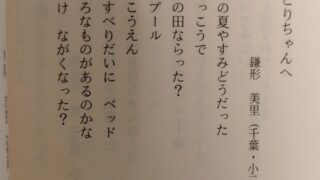 とりちゃんへ
鎌形 美里（千葉・小二
の夏やすみどうだった
っこうで
の田ならった？
プール
こうえん
すべりだいに ベッド
ろなものがあるのかな
け ながくなった？